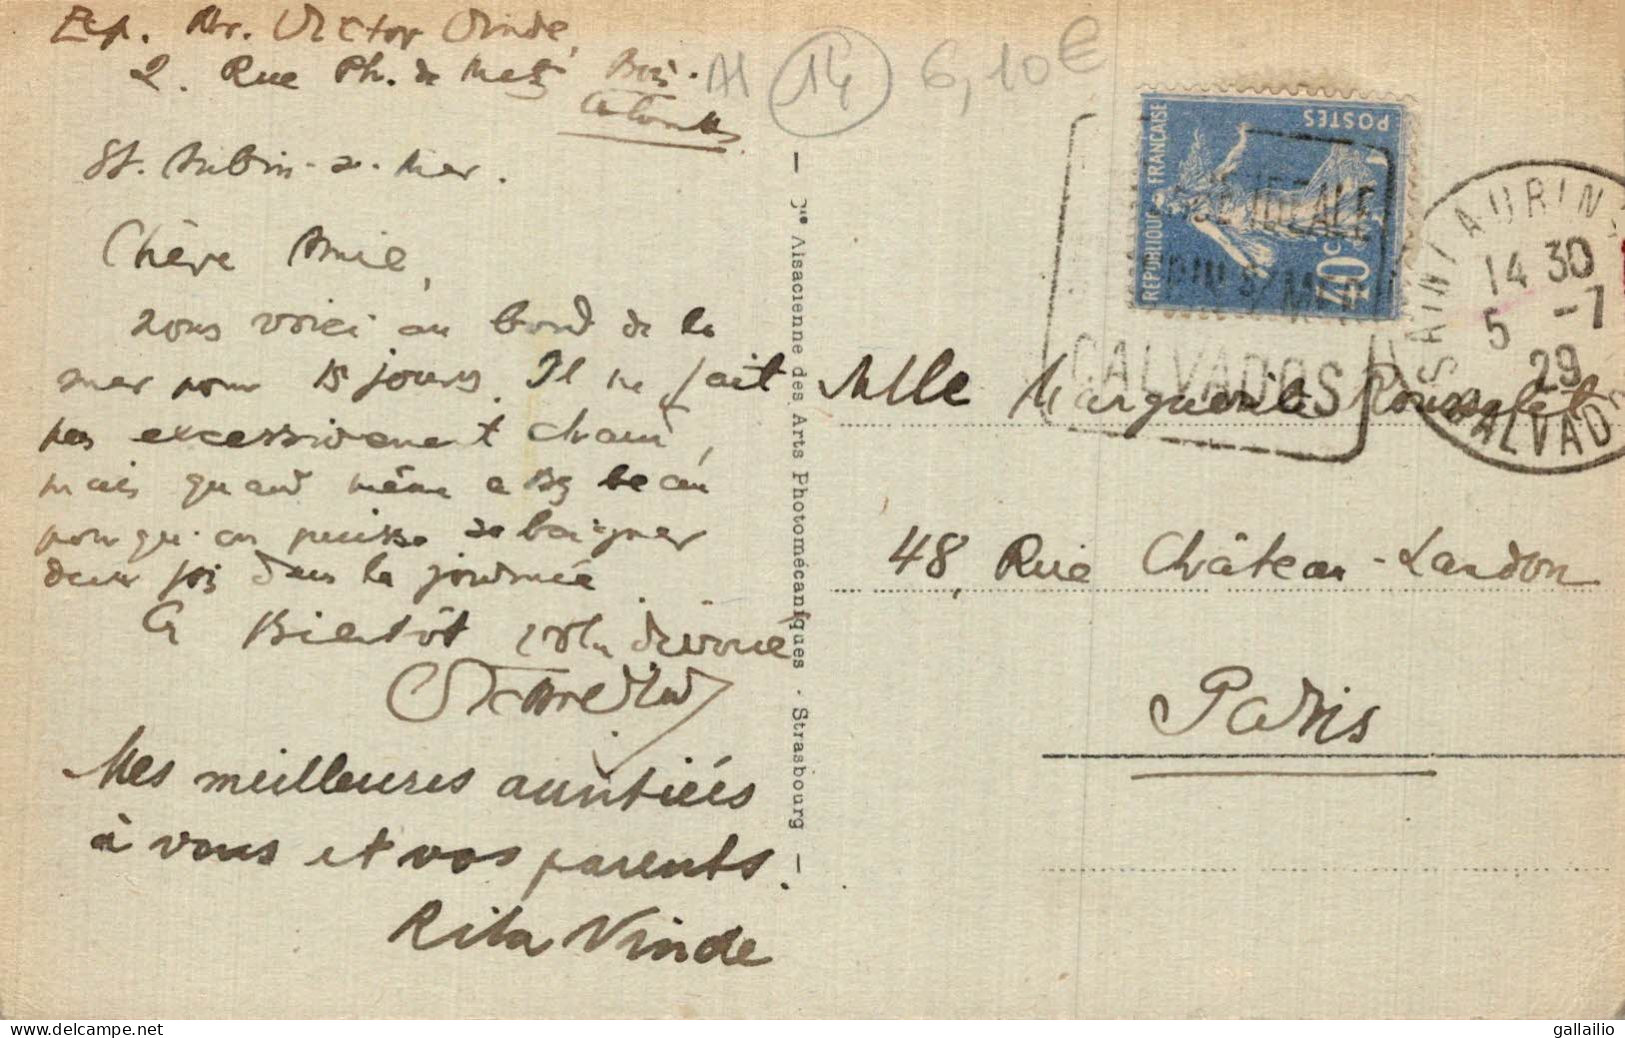 Exp. Mr. Victor Vinde,
2. Rue Ph. de Metz, Bois-
Colombes
St. Aubin-s-Mer.
Chère Amie,
nous voici au bord de la
mer pour 15 jours. Il ne fait
pas excessivement chaud,
mais quand même assez beau
pour qu'on puisse se baigner
deux fois dans la journée
A Bientôt votre dévoué
Mes meilleures amitiées
à vous et vos parents.
Rita Vinde
Cie Alsacienne des Arts Photomécaniques - Strasbourg
A1 14 6,10€
POSTES
REPUBLIQUE FRANÇAISE
40c
IDEALE
S/MER
CALVADOS
SAINT AUBIN S
14 30
5 -7
29
CALVADOS
Mlle Marguerite Rousselet
48, Rue Château-Landon
Paris
www.delcampe.net
gallailio